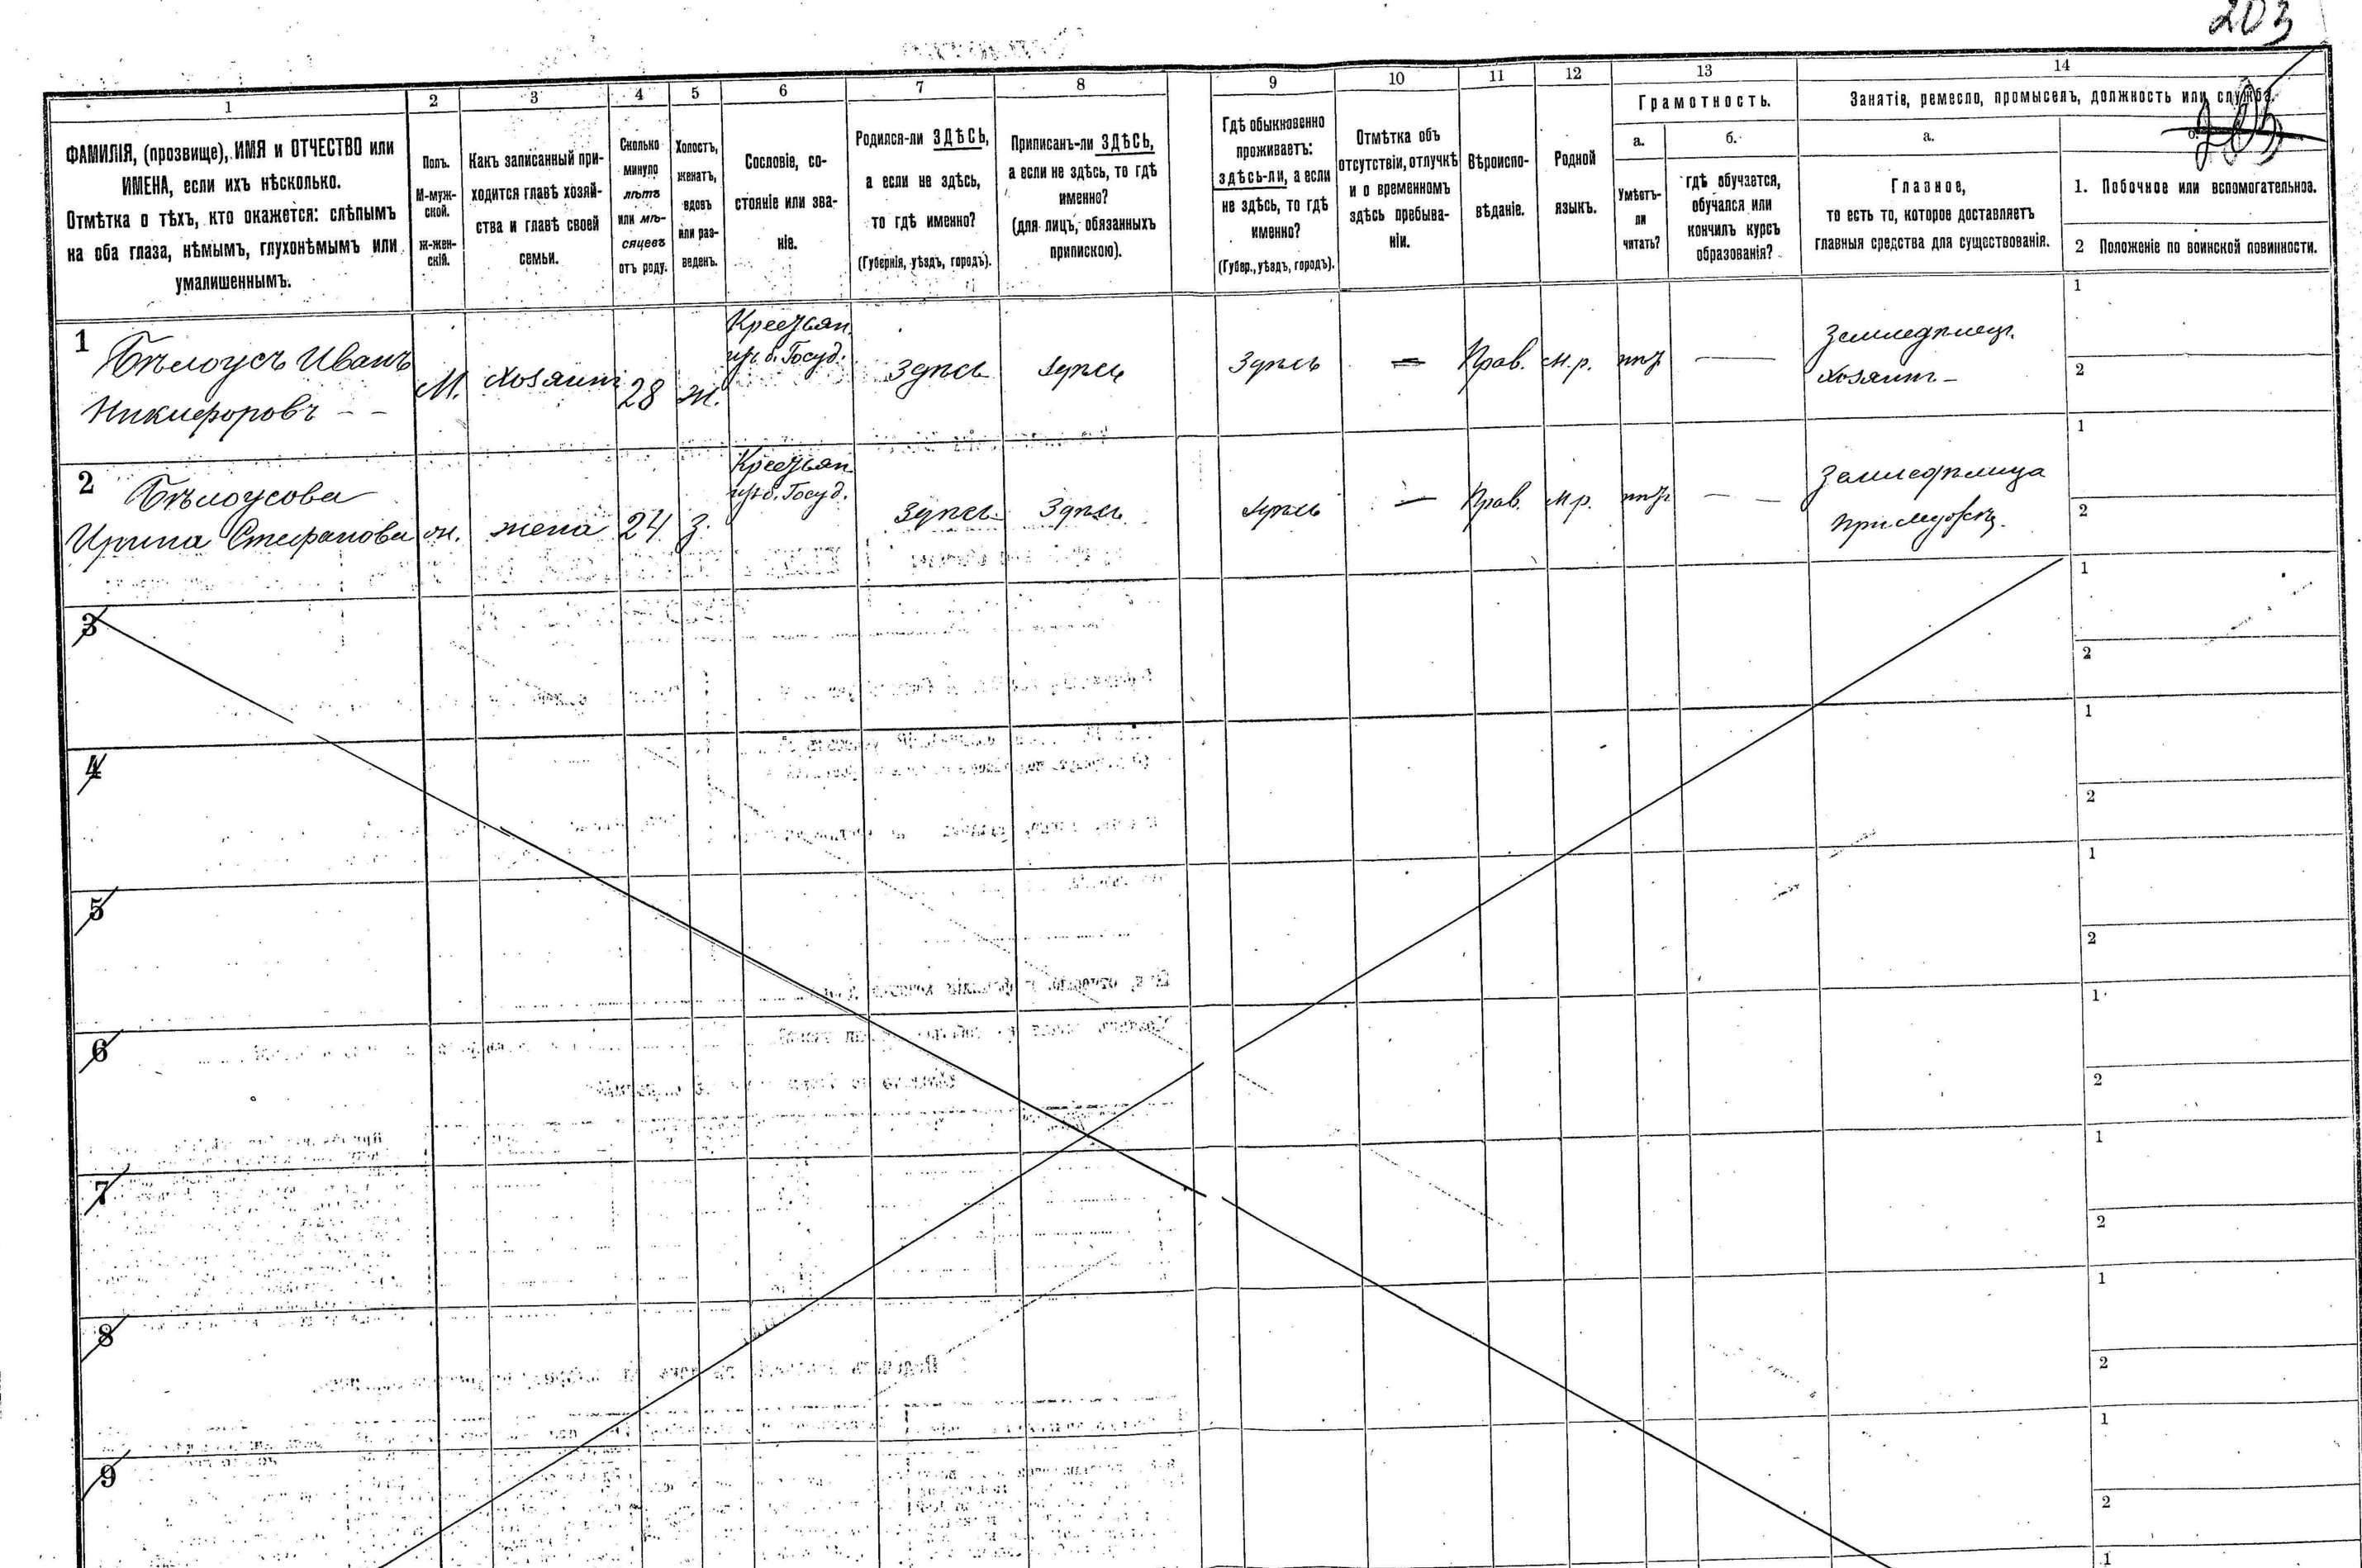 203
1
2
3
4
5
6
7
8
9
10
11
12
13
14
ФАМИЛІЯ, (прозвище), ИМЯ и ОТЧЕСТВО или
ИМЕНА, если ихъ нѣсколько.
Отмѣтка о тѣхъ, кто окажется: слѣпымъ
на оба глаза, нѣмымъ, глухонѣмымъ или
умалишеннымъ.
Полъ.
М-муж-
ской.
ж-жен-
скій.
Какъ записанный при-
ходится главѣ хозяй-
ства и главѣ своей
семьи.
Сколько
минуло
лѣтъ
или мѣ-
сяцевъ
отъ роду.
Холостъ,
женатъ,
вдовъ
или раз-
веденъ.
Сословіе, со-
стояніе или зва-
ніе.
Родился-ли ЗДѢСЬ,
а если не здѣсь,
то гдѣ именно?
(Губернія, уѣздъ, городъ).
Приписанъ-ли ЗДѢСЬ,
а если не здѣсь, то гдѣ
именно?
(для лицъ, обязанныхъ
припискою).
Гдѣ обыкновенно
проживаетъ:
здѣсь-ли, а если
не здѣсь, то гдѣ
именно?
(Губер., уѣздъ, городъ).
Отмѣтка объ
отсутствіи, отлучкѣ
и о временномъ
здѣсь пребыва-
ніи.
Вѣроиспо-
вѣданіе.
Родной
языкъ.
Грамотность.
а.
Умѣетъ-
ли
читать?
б.
гдѣ обучается,
обучался или
кончилъ курсъ
образованія?
Занятіе, ремесло, промыселъ, должность или служба.
а.
Главное,
то есть то, которое доставляетъ
главныя средства для существованія.
1. Побочное или вспомогательное.
2 Положеніе по воинской повинности.
1
Бѣлоусъ Иванъ
Никифоровъ - -
М.
хозяинъ
28
ж.
Крестьян.
изъ б. Госуд.
Здѣсь
здѣсь
Здѣсь
—
Прав.
м.р.
нѣт
—
Земледѣлец.
Хозяинъ -
1
2
2
Бѣлоусова
Ирина Стефанова
ж.
жена
24
з.
Крестьян
изъ б. Госуд.
Здѣсь
Здѣсь
здѣсь
—
Прав.
м.р.
нѣт
— —
Земледѣлица
при мужѣ.
1
2
3
1
2
4
1
2
5
1
2
6
1
2
7
1
2
8
1
2
9
1
2
1